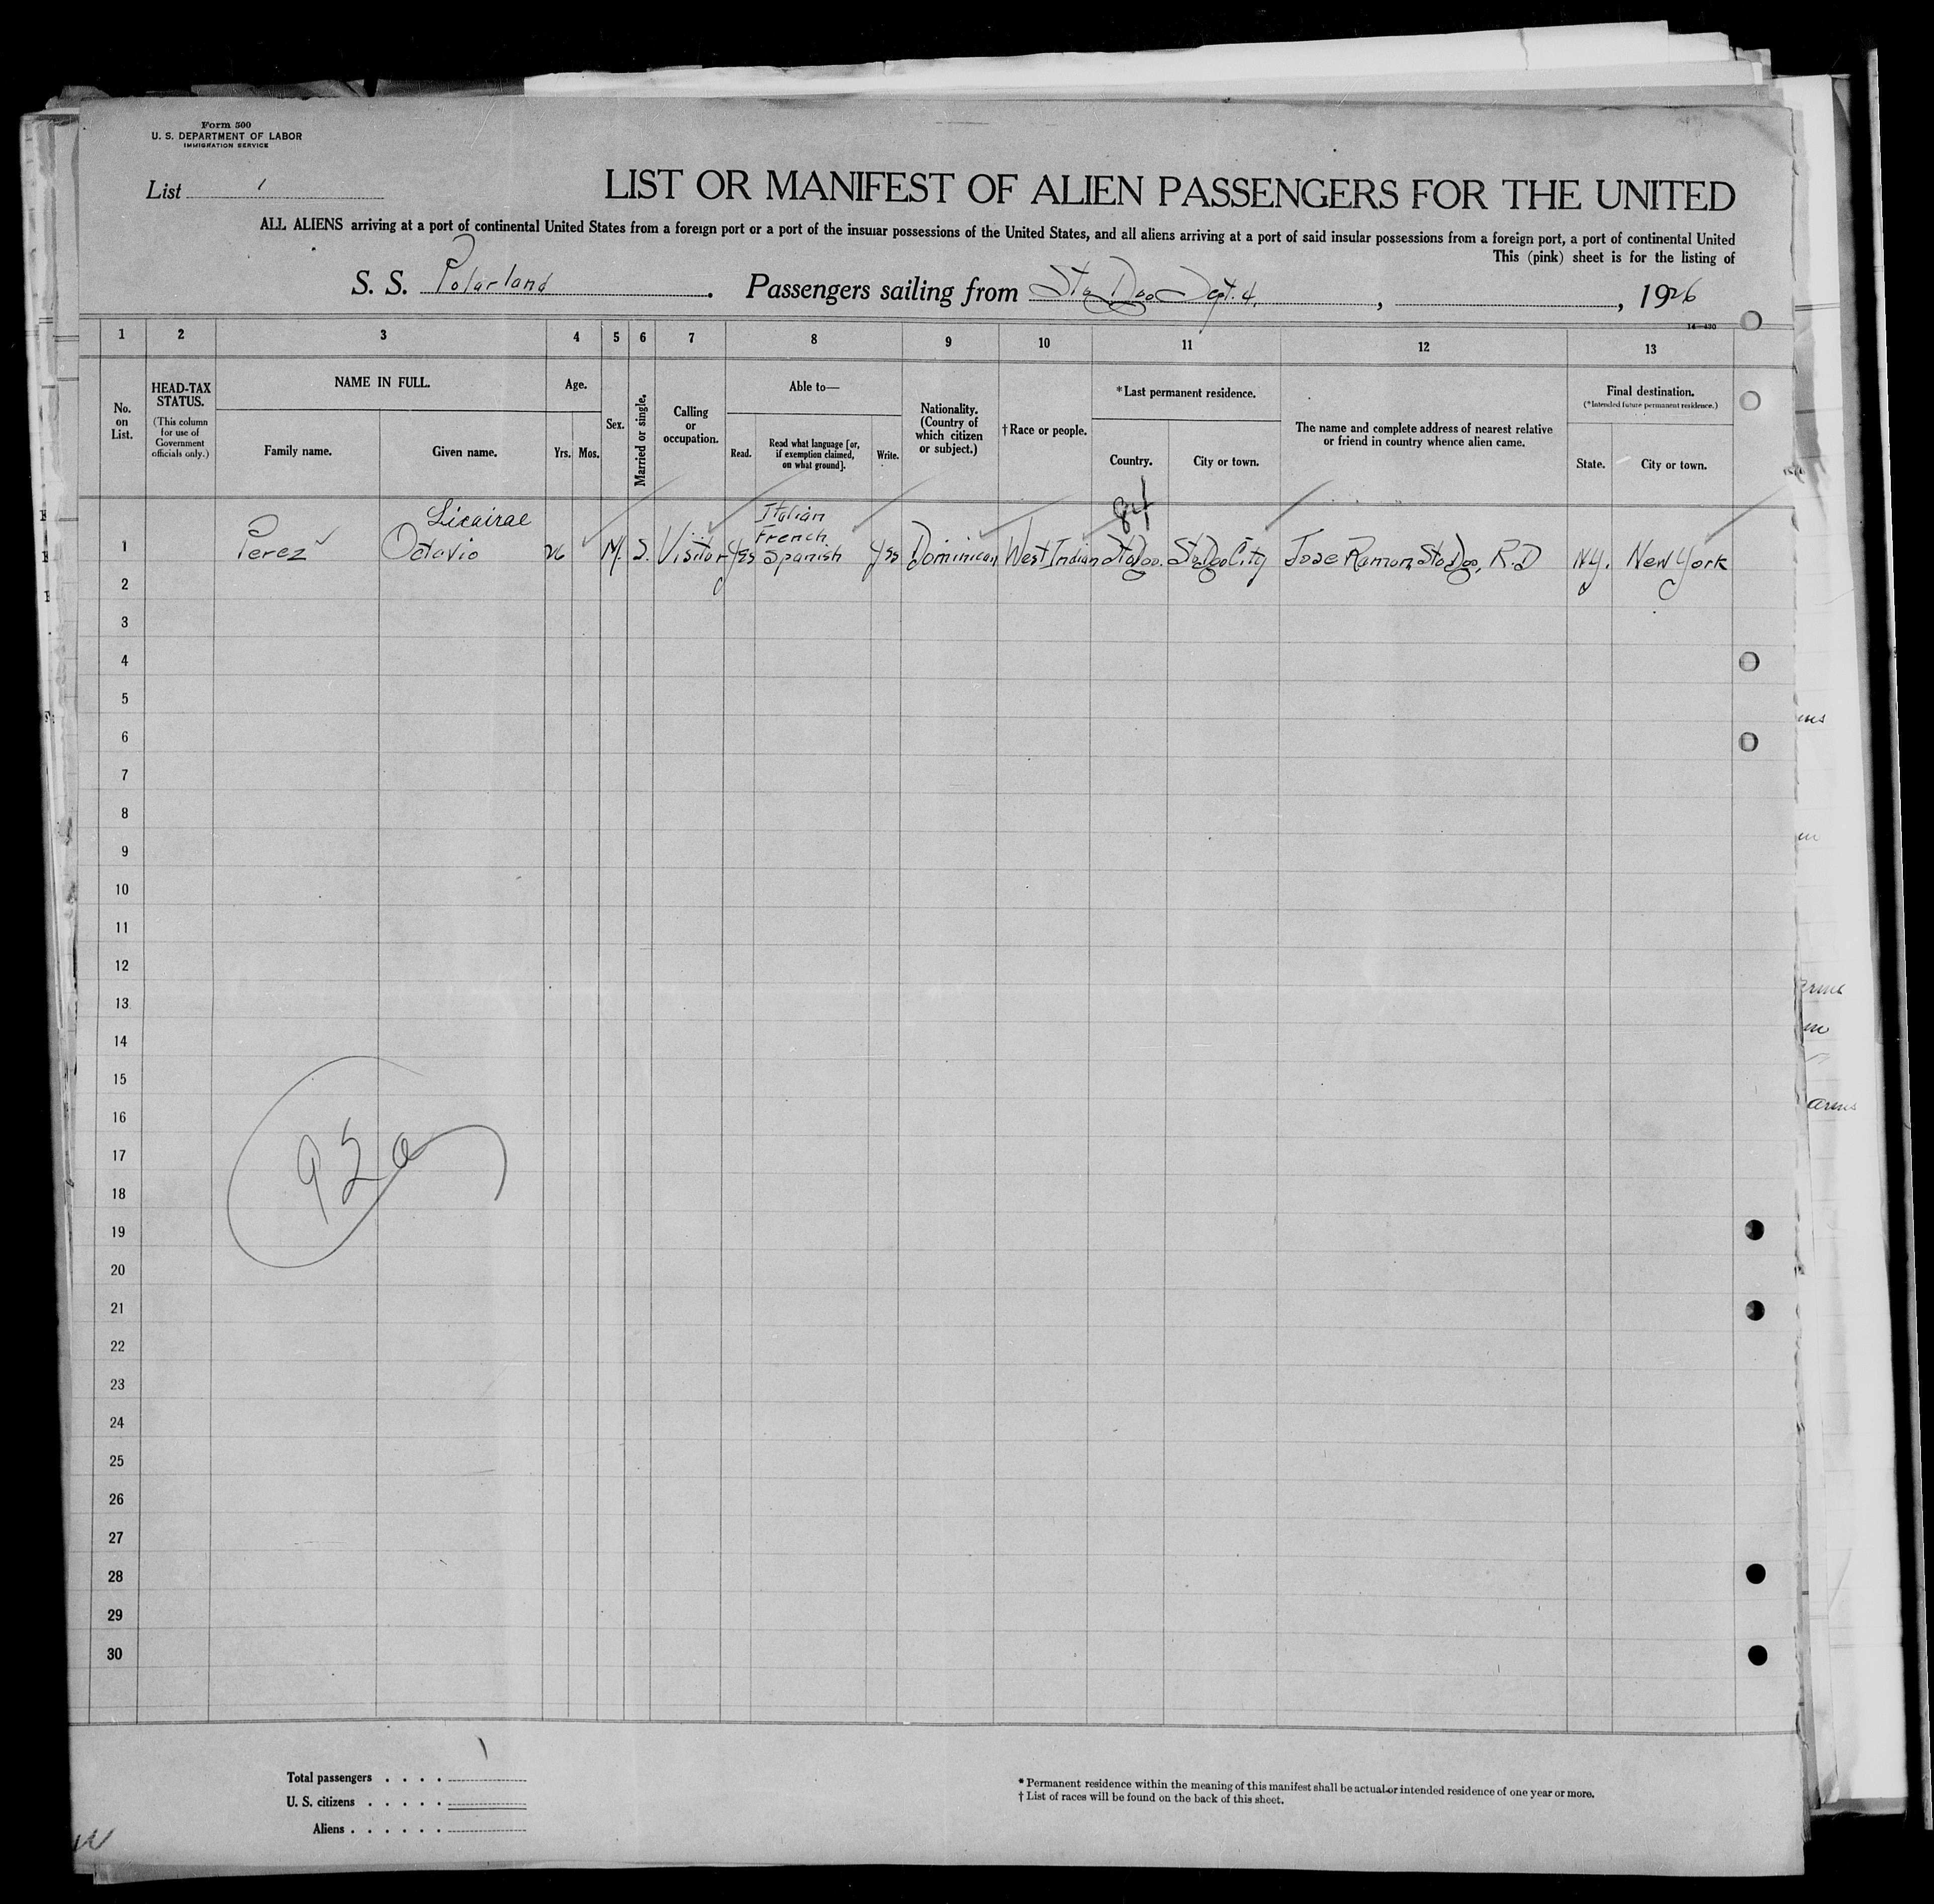 Form 500
U. S. DEPARTMENT OF LABOR
IMMIGRATION SERVICE
List 1
LIST OR MANIFEST OF ALIEN PASSENGERS FOR THE UNITED
ALL ALIENS arriving at a port of continental United States from a foreign port or a port of the insular possessions of the United States, and all aliens arriving at a port of said insular possessions from a foreign port, a port of continental United
This (pink) sheet is for the listing of
S. S. Polarland. Passengers sailing from Sto Doo Sept. 4, , 1926
14—430
1 2 3 4 5 6 7 8 9 10 11 12 13
No. on List.
HEAD-TAX STATUS.
(This column for use of Government officials only.)
NAME IN FULL.
Family name. Given name.
Age.
Yrs. Mos.
Sex.
Married or single.
Calling or occupation.
Able to—
Read. Read what language [or, if exemption claimed, on what ground]. Write.
Nationality. (Country of which citizen or subject.)
†Race or people.
*Last permanent residence.
Country. City or town.
The name and complete address of nearest relative or friend in country whence alien came.
Final destination.
(*Intended future permanent residence.)
State. City or town.
84
Licairac
Italian
French
1 Perez Octavio 26 M. S. Visitor Yes Spanish Yes Dominican West Indian Sto Doo. Sto Doo City Jose Ramon, Sto Doo, R.D N.Y. New York
2
3
4
5
6
7
8
9
10
11
12
13
14
15
16
17
18
19
20
21
22
23
24
25
26
27
28
29
30
92a
Total passengers . . . . 1
U. S. citizens . . . . .
Aliens . . . . . .
* Permanent residence within the meaning of this manifest shall be actual or intended residence of one year or more.
† List of races will be found on the back of this sheet.